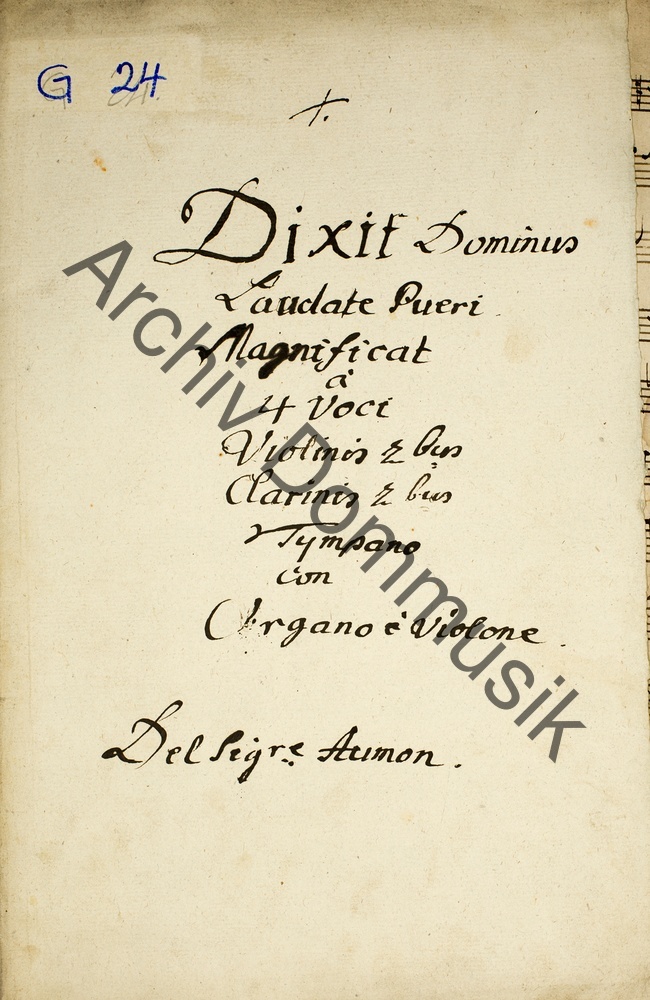 G 24
+.
Dixit Dominus
Laudate Pueri
Magnificat
à
4 Voci
Violinis 2 bus
Clarinis 2 bus
Tympano
con
Organo è Violone.
Del Sigre Aumon.
Archiv Dommusik